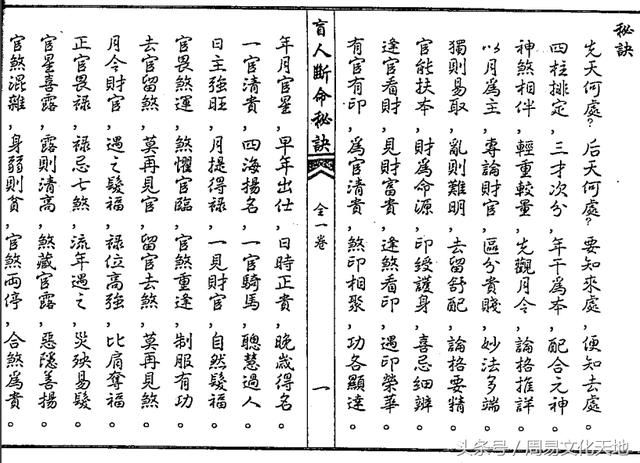 秘訣
先天何處？后天何處？要知來處，便知去處。
四柱排定，三才次分，年干為本，配合元神
神煞相伴，輕重較量，先觀月令，論格推詳
以月為主，專論財官，區分貴賤，妙法多端
獨則易取，亂則難明，去留舒配，論格要精
官能扶本，財為命源，印綬護身，喜忌細辨
逢官看財，見財富貴，逢煞看印，遇印榮華
有官有印，為官清貴，煞印相聚，功名顯達。
盲人斷命秘訣 全一卷 一
年月官星，早年出仕，日時正貴，晚歲得名
一官清貴，四海揚名，一官騎馬，聰慧過人
日主強旺，月提得祿，一見財官，自然發福
官畏煞運，煞懼官臨，官煞重逢，制服有功
去官留煞，莫再見官，留官去煞，莫再見煞
月令財官，遇之發福，祿位高強，比肩奪福
正官畏祿，祿忌七煞，流年遇之，災殃易發
官星喜露，露則清高，煞藏官露，惡隱善揚
官煞混雜，身弱則貧，官煞兩停，合煞為貴。
头条号/周易文化天地